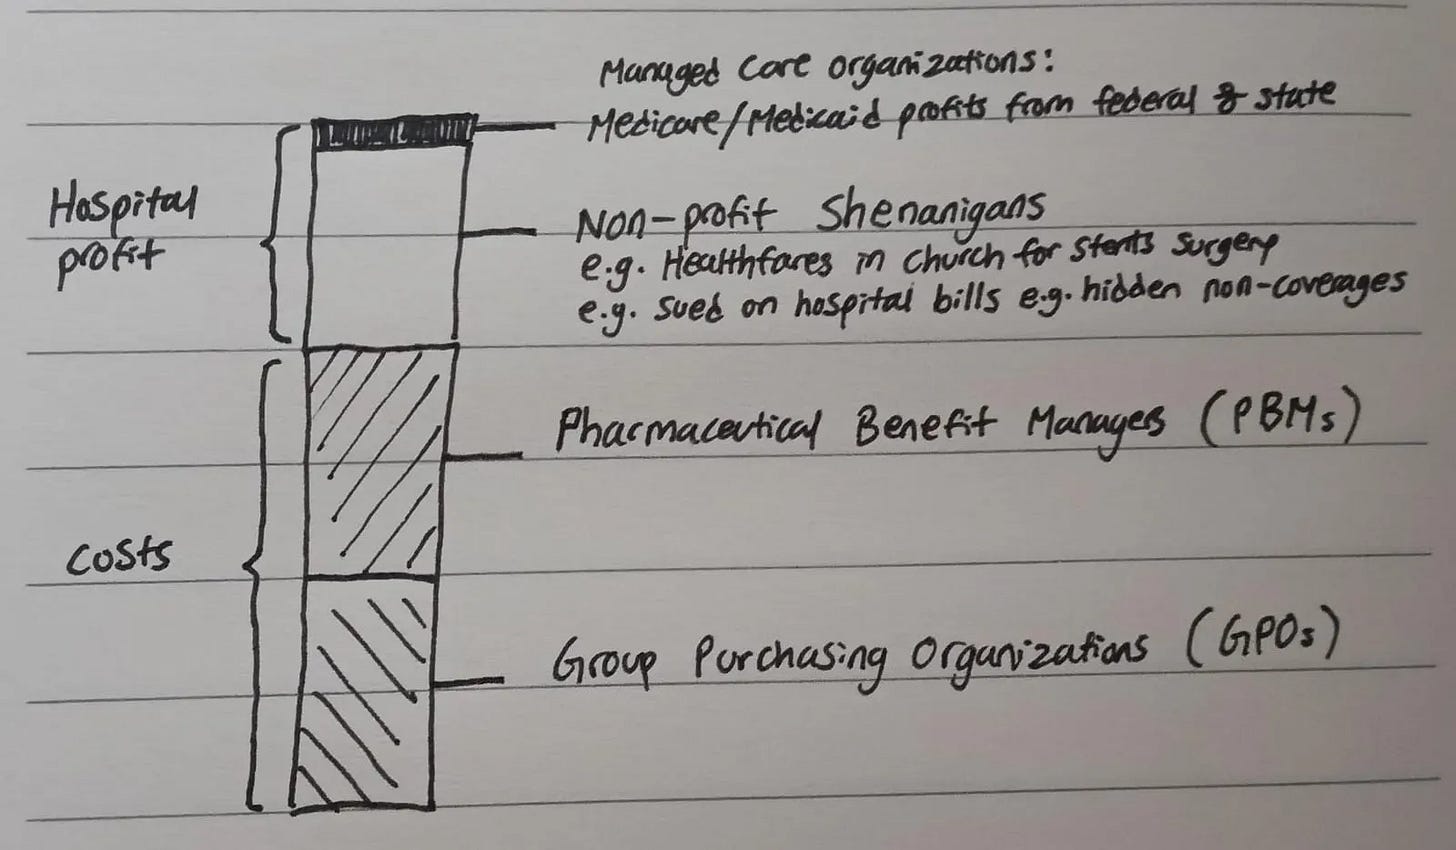 Managed Care organizations:
Medicare/Medicaid profits from federal & state
Hospital
profit
Non-profit Shenanigans
e.g. Healthfares in church for stents surgery
e.g. sued on hospital bills e.g. hidden non-coverages
Pharmaceutical Benefit Managers (PBMs)
costs
Group Purchasing Organizations (GPOs)